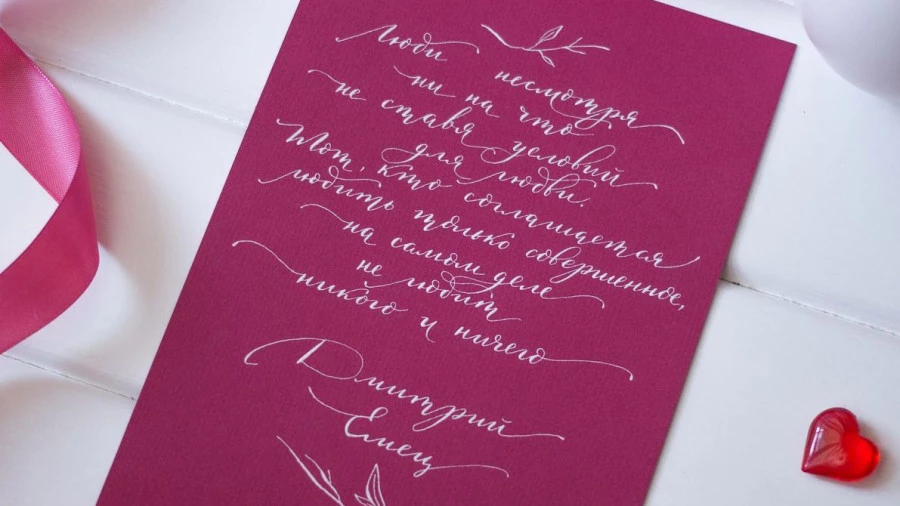 Люби несмотря
ни на что
не ставя условий
для любви.
Тот, кто соглашается
любить только совершенное,
на самом деле
не любит
никого и ничего
Дмитрий
Емец